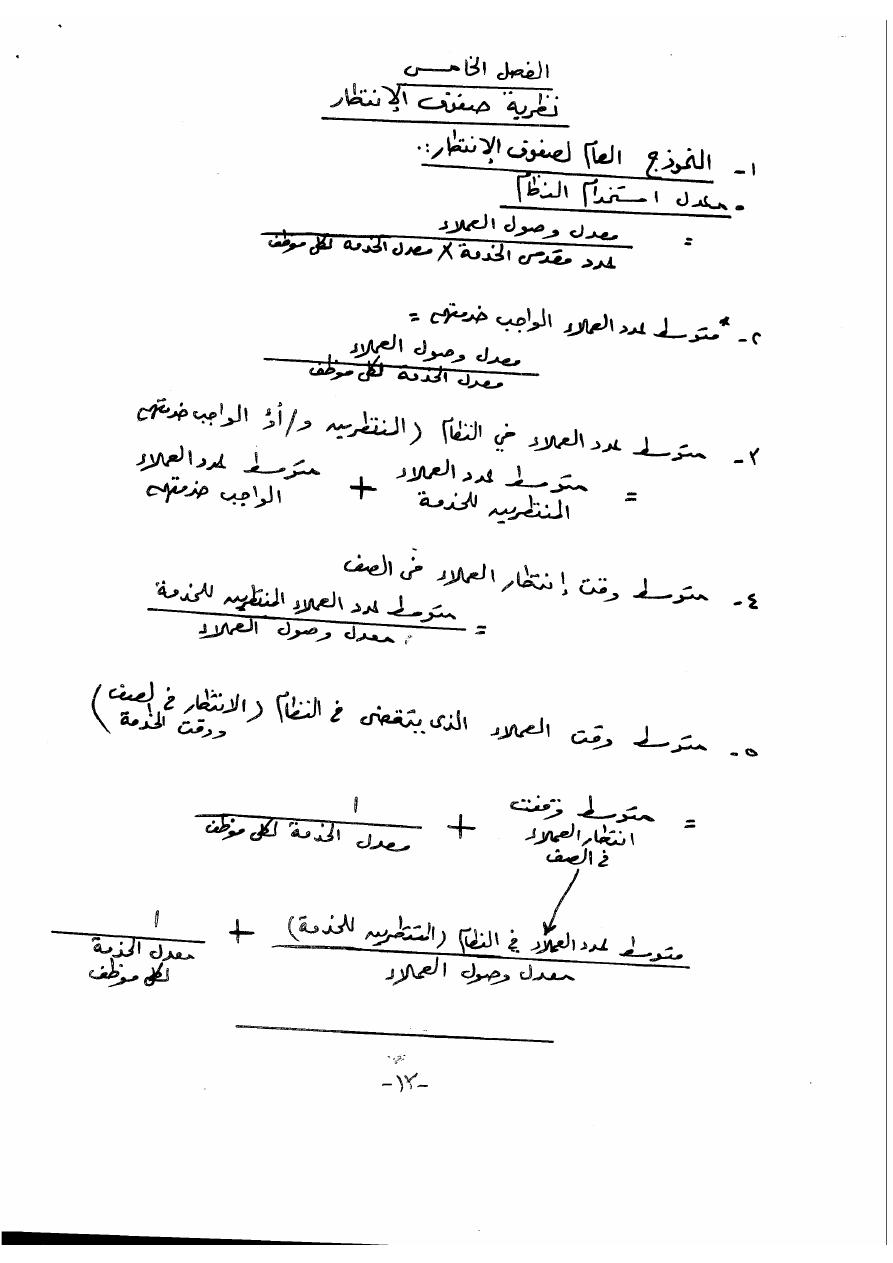 الفصل الخامس
نظرية صفوف الإنتظار
١- النموذج العام لصفوف الإنتظار:.
• معدل استخدام النظام
= معدل وصول العملاء
عدد مقدمى الخدمة × معدل الخدمة لكل موظف
٢- * متوسط عدد العملاء الواجب خدمتهم =
معدل وصول العملاء
معدل الخدمة لكل موظف
٣- متوسط عدد العملاء في النظام (المنتظرين و/أو الواجب خدمتهم
= متوسط عدد العملاء + متوسط عدد العملاء
المنتظرين للخدمة الواجب خدمتهم
٤- متوسط وقت إنتظار العملاء فى الصف
= متوسط عدد العملاء المنتظرين للخدمة
معدل وصول العملاء
٥- متوسط وقت العملاء الذى ينقضى في النظام (الانتظار في الصف
ووقت الخدمة)
= متوسط وقت + ١
انتظار العملاء معدل الخدمة لكل موظف
في الصف
متوسط عدد العملاء في النظام (المنتظرين للخدمة) + ١
معدل وصول العملاء معدل الخدمة
لكل موظف
-١٣-